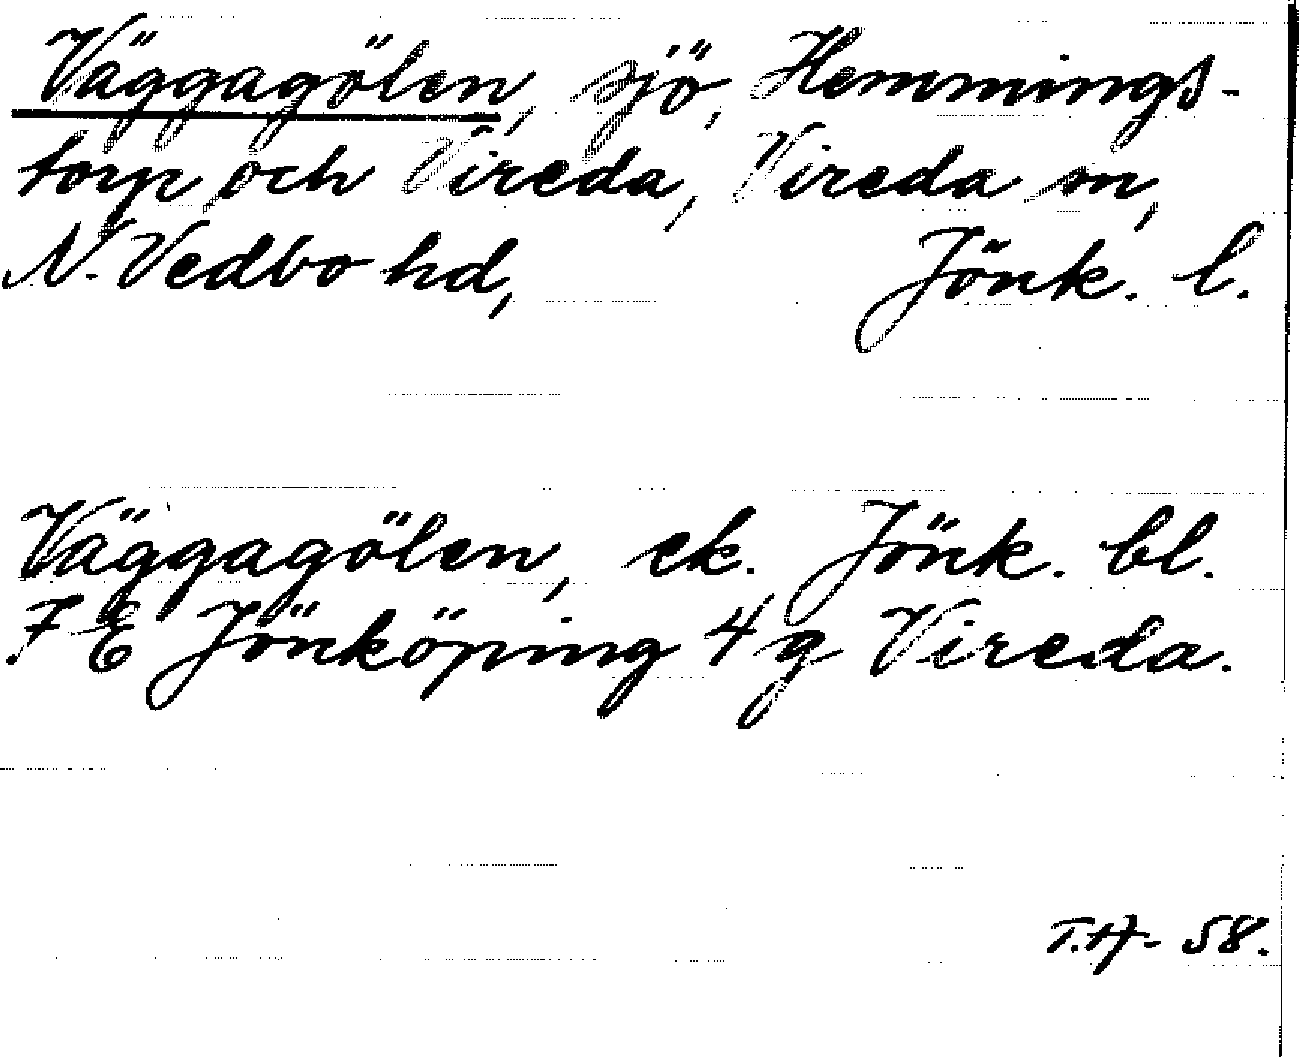 Väggagölen, sjö, Hemmings-
torp och Vireda, Vireda sn,
N. Vedbo hd, Jönk. l.
Väggagölen, ek. Jönk. bl.
7 E Jönköping 4 g Vireda.
T.H- 58.